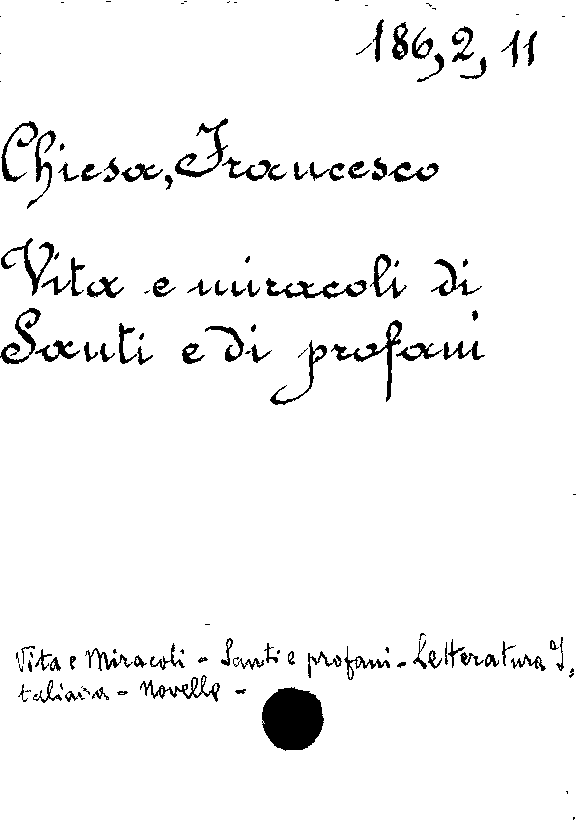 186,2,11
Chiesa, Francesco
Vita e miracoli di
Santi e di profani
Vita e Miracoli - Santi e profani - Letteratura I,
taliana - Novelle -